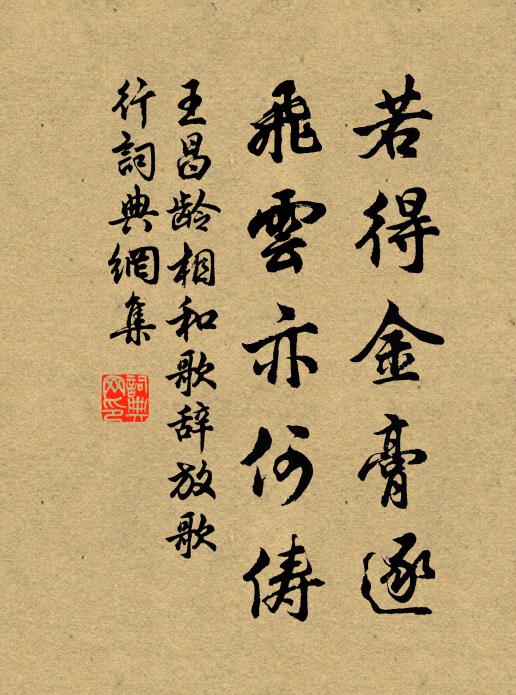 若得金膏遂
飛雲亦何儔
王昌龄相和歌辞放歌
行詞典網集
詞典
网印